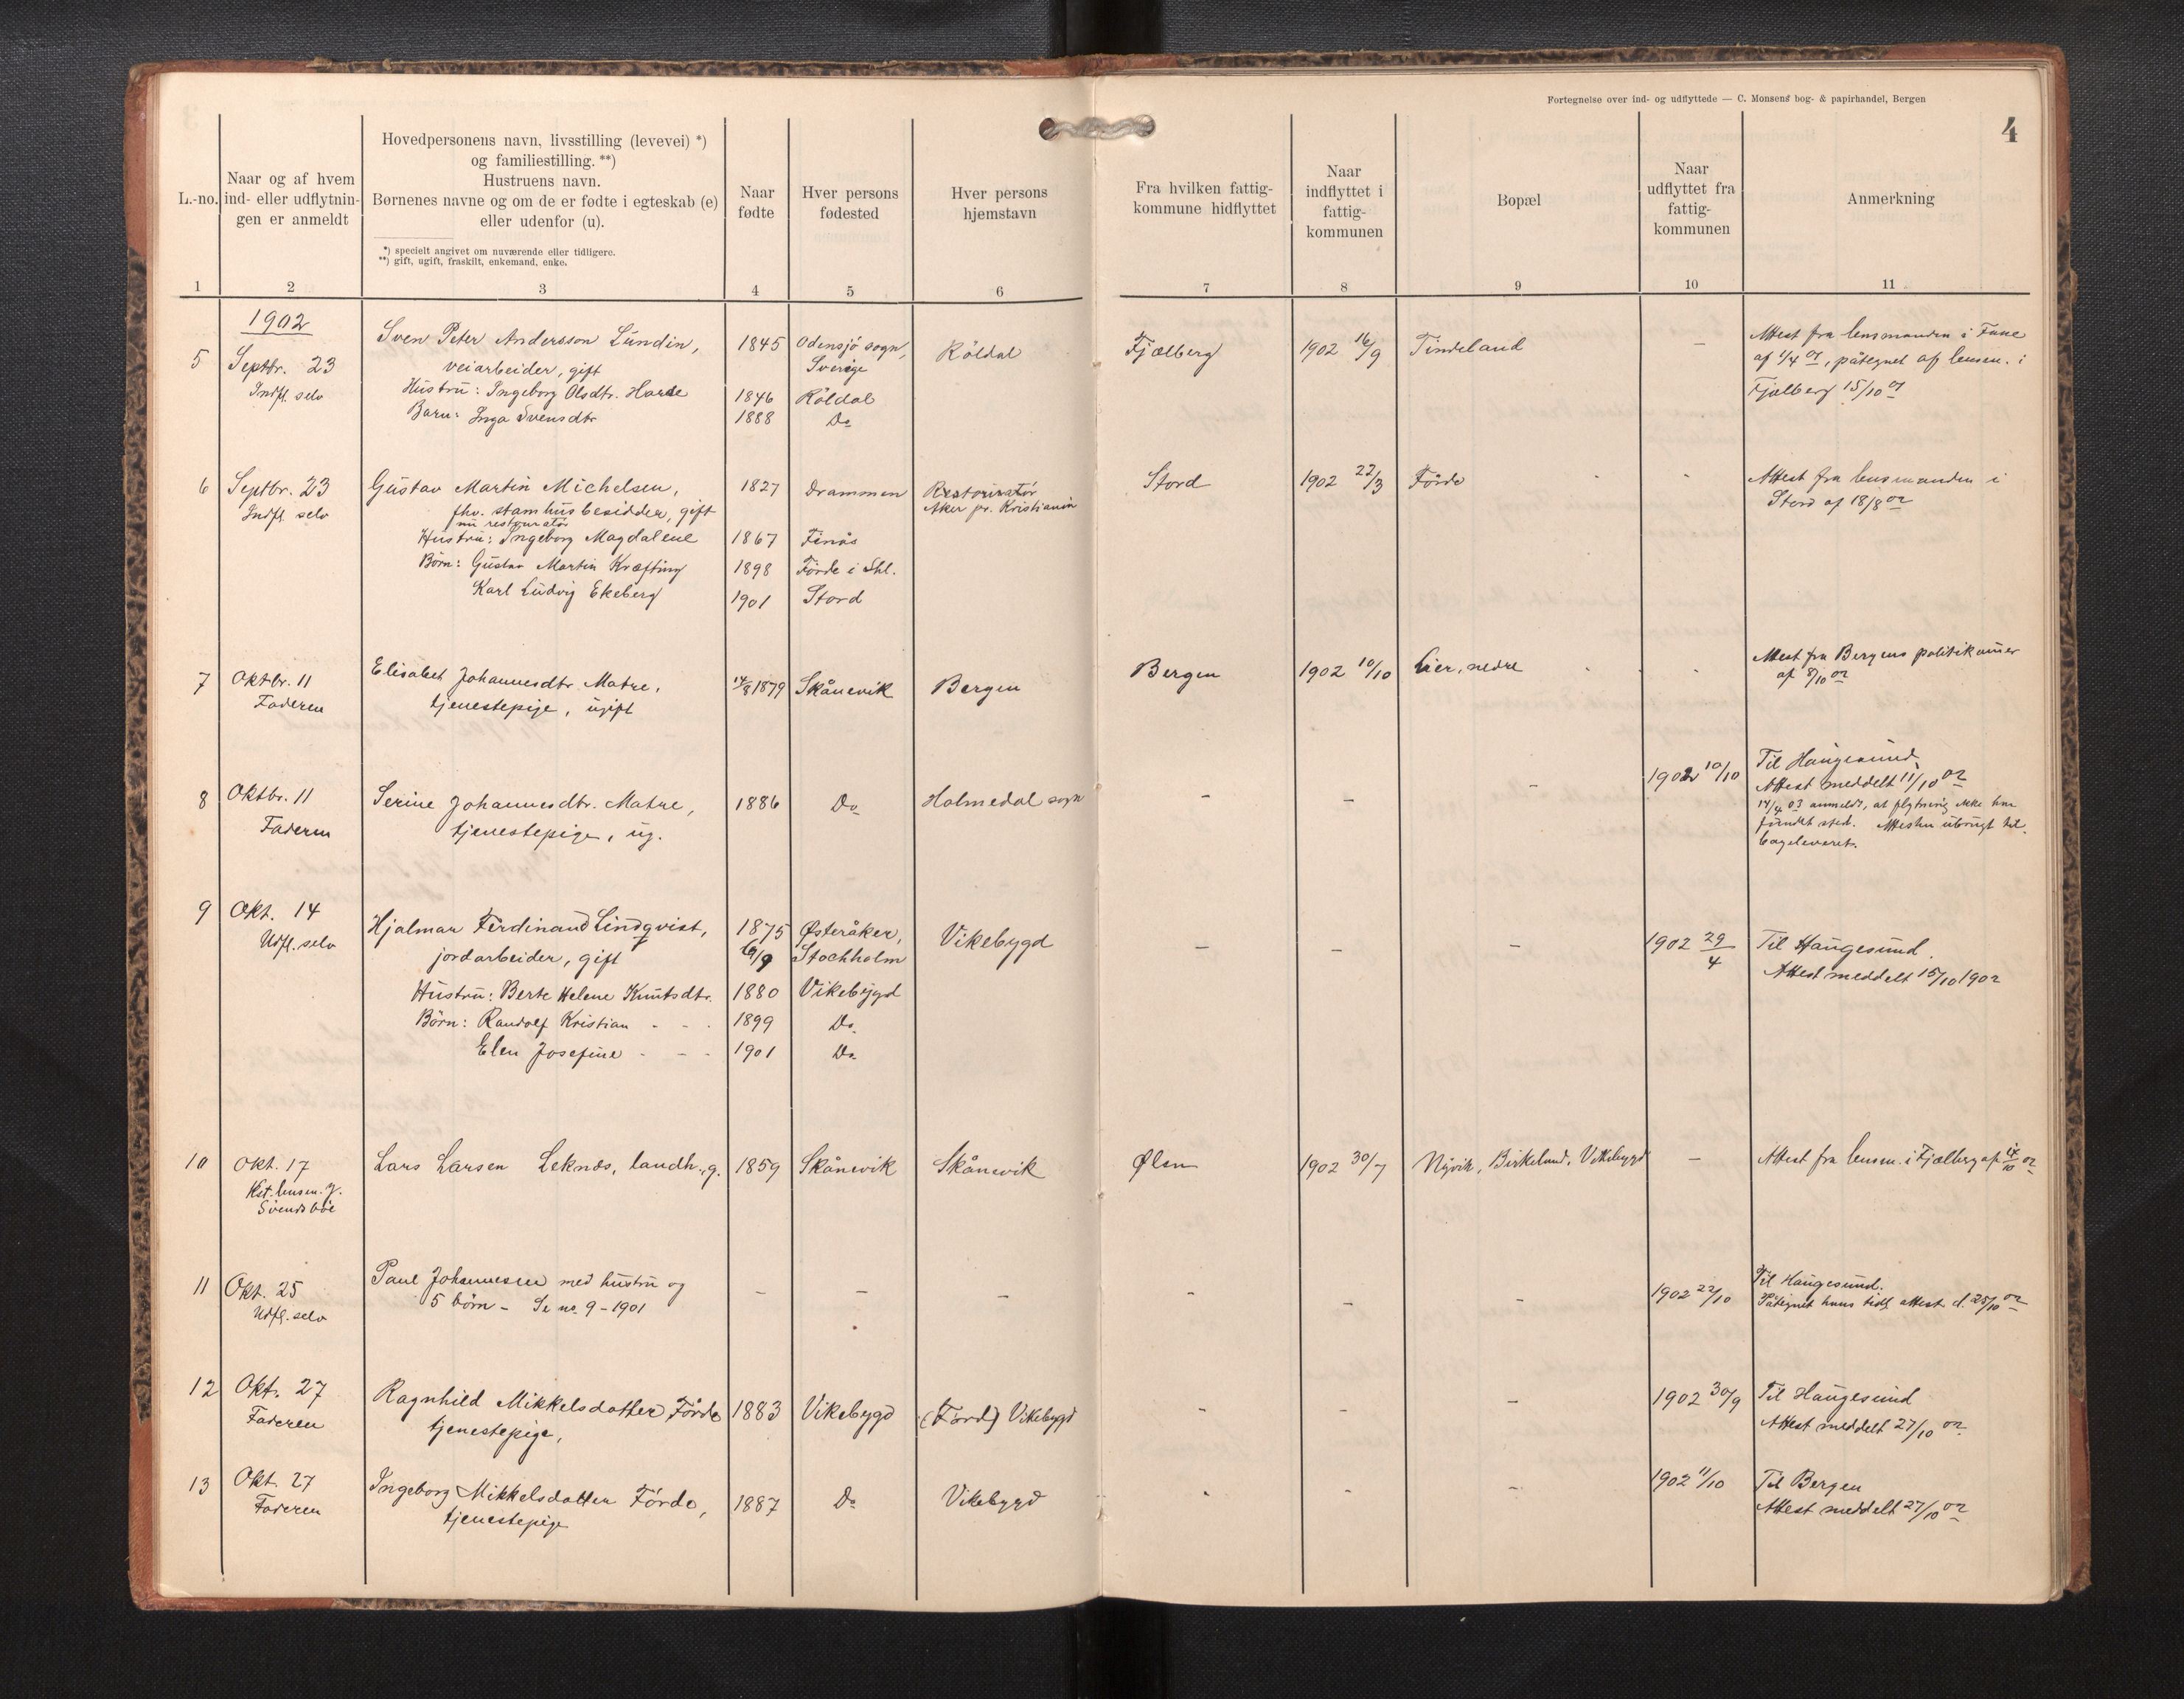 Fortegnelse over ind- og udflyttede — C. Monsens bog- & papirhandel, Bergen
4
L.-no.
Naar og af hvem
ind- eller udflytnin-
gen er anmeldt
Hovedpersonens navn, livsstilling (levevei) *)
og familiestilling. **)
Hustruens navn.
Børnenes navne og om de er fødte i egteskab (e)
eller udenfor (u).
*) specielt angivet om nuværende eller tidligere.
**) gift, ugift, fraskilt, enkemand, enke.
Naar
fødte
Hver persons
fødested
Hver persons
hjemstavn
Fra hvilken fattig-
kommune hidflyttet
Naar
indflyttet i
fattig-
kommunen
Bopæl
Naar
udflyttet fra
fattig-
kommunen
Anmerkning
1 2 3 4 5 6 7 8 9 10 11
1902
5 Septbr. 23 Sven Peter Andersson Lundin, 1845 Odensjö sogn, Röldal Fjælberg 1902 16/9 Tindeland — Attest fra lensmanden i
Indfl. selv veiarbeider, gift Sverige af 1/4 02, påtegnet af lensm. i
Hustru: Ingeborg Olsdtr. 1846 Röldal Fjælberg 15/10 02
Barn: Inga Svensdtr 1888 Do
6 Septbr. 23 Gustav Martin Michelsen, 1827 Drammen Restoriratör Stord 1902 22/3 Förde - Attest fra lensmanden i
Indfl. selv fhv. stamhusbesidder, gift Aker pr. Kristiania Stord af 18/8 02
nu restauratör
Hustru: Ingeborg Magdalene 1867 Finås
Börn: Gustav Martin Kræfting 1898 Förde i Shl.
Karl Ludvig Ekeberg 1901 Stord
7 Oktbr. 11 Elisabet Johannesdtr. Matre, 14/8 1879 Skånevik Bergen Bergen 1902 10/10 Lier, nedre - Attest fra Bergens politikamer
Faderen tjenestepige, ugift af 8/10 02
8 Oktbr. 11 Serine Johannesdtr. Matre, 1886 Do Holmedal sogn - - - 1902 10/10 Til Haugesund,
Faderen tjenestepige, ug. Attest meddelt 11/10 02
14/4 03 anmeldt, at flytning ikke har
fundet sted. Attesten ubrugt til-
bageleveret.
9 Okt. 14 Hjalmar Ferdinand Lindqvist, 1875 Østeråker, Vikebygd - - - 1902 29/4 Til Haugesund.
Udfl. selv jordarbeider, gift 6/9 Stockholm Attest meddelt 15/10 1902
Hustru: Berte Helene Knutsdtr. 1880 Vikebygd
Börn: Randolf Kristian - - 1899 Do
Elen Josefine - - - 1901 Do
10 Okt. 17 Lars Larsen Leknes, landh., g. 1859 Skånevik Skånevik Ølen 1902 30/7 Nyvik, Birkelund, Vikebygd — Attest fra lensm. i Fjælberg af 14/10 02
Kst. lensm. J.
Svendsböe
11 Okt. 25 Paul Johannesen med hustru og - - - - - - 1902 22/10 Til Haugesund.
Udfl. selv 5 börn - Se no. 9-1901 Påtegnet hans tidl. attest d. 25/10 02
12 Okt. 27 Ragnhild Mikkelsdatter Förde 1883 Vikebygd (Förd) Vikebygd - - - 1902 30/9 Til Haugesund
Faderen tjenestepige, Attest meddelt 27/10 02
13 Okt. 27 Ingeborg Mikkelsdatter Förde, 1887 Do Vikebygd - - - 1902 11/10 Til Bergen
Faderen tjenestepige Attest meddelt 27/10 02